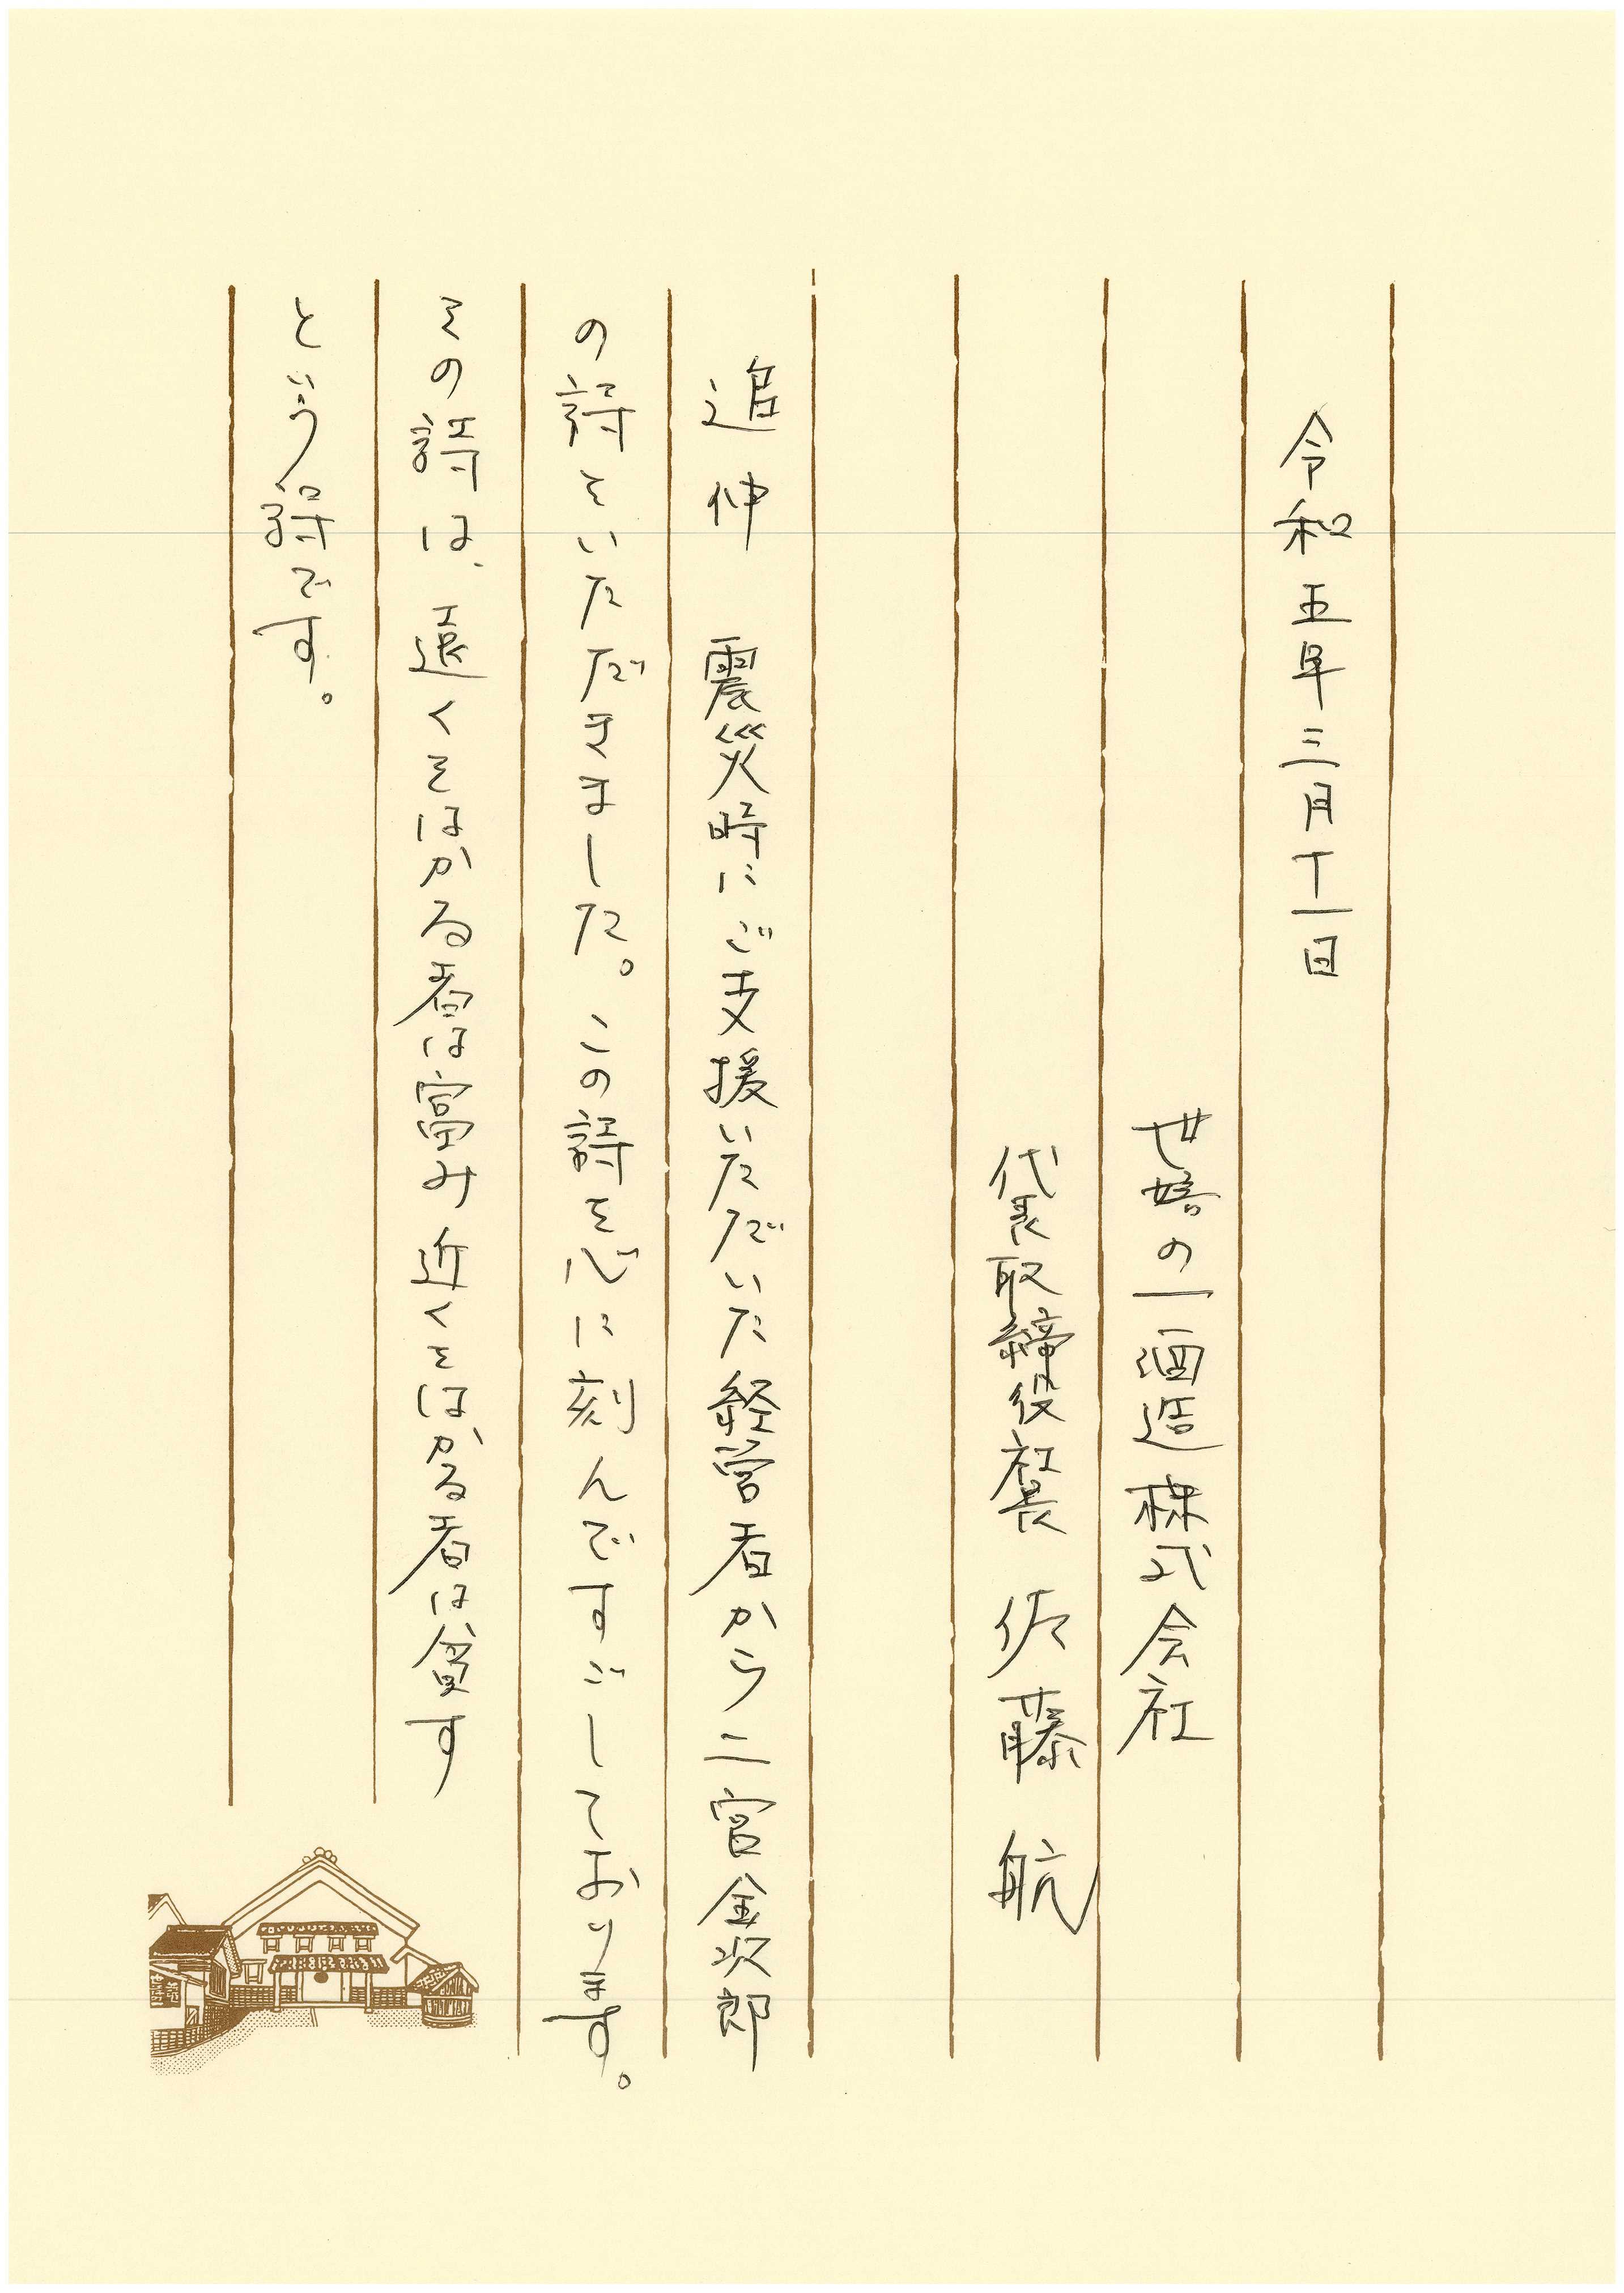 令和五年三月十一日
世嬉の一酒造株式会社
代表取締役社長 佐藤航
追伸 震災時にご支援いただいた経営者から二宮金次郎
の詩をいただきました。この詩を心に刻んですごしております。
その詩は、遠くをはかる者は富み近くをはかる者は貧す
という詩です。